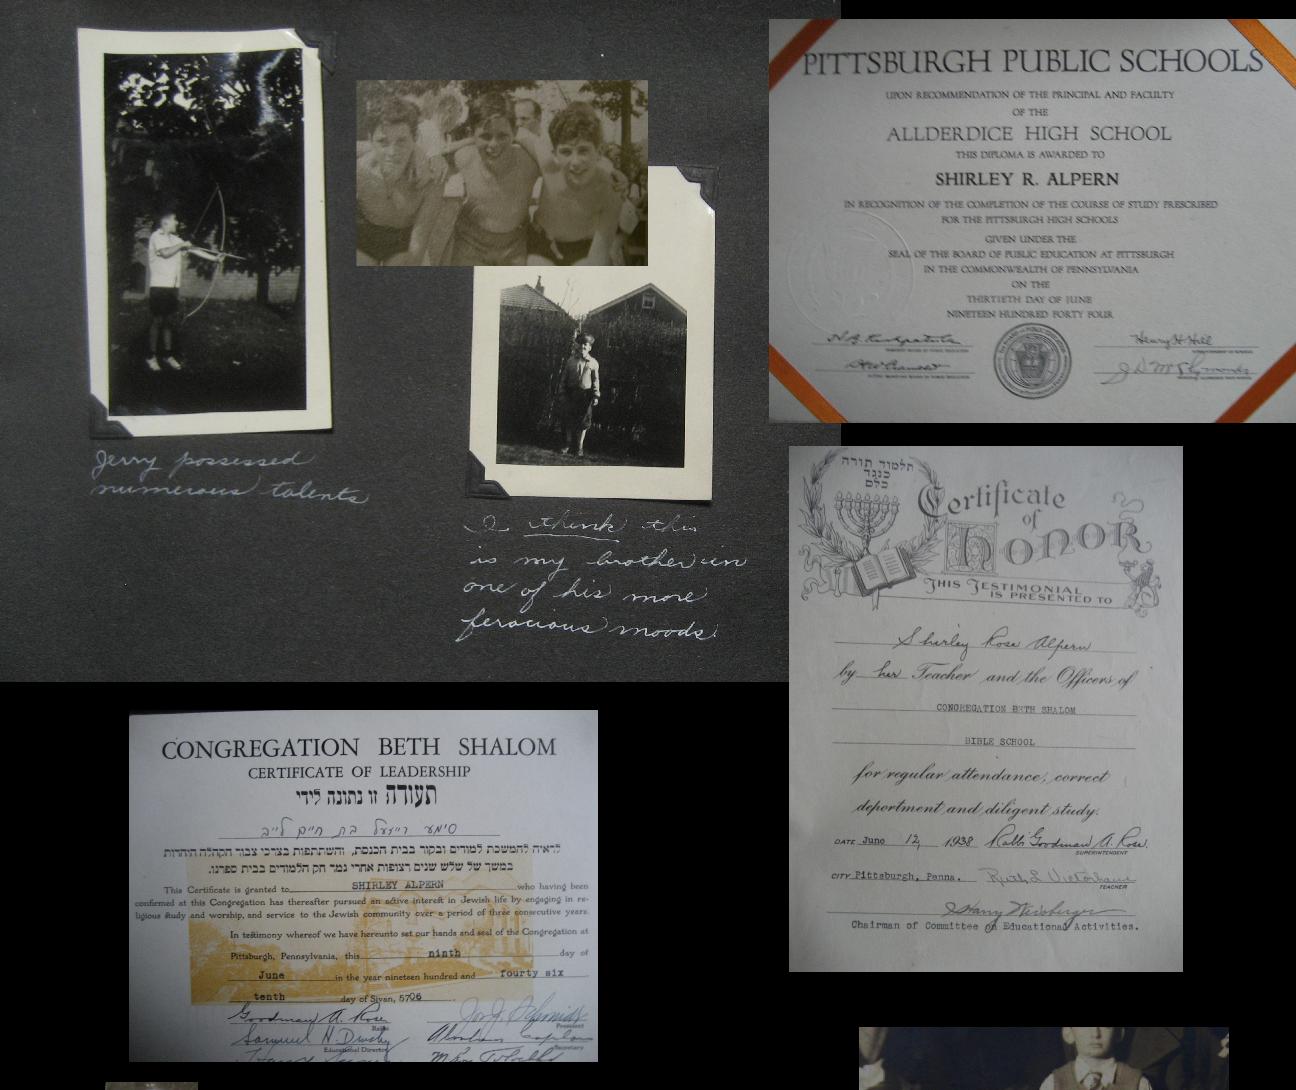 Jerry possessed
numerous talents
I think this
is my brother in
one of his more
ferocious moods.
PITTSBURGH PUBLIC SCHOOLS
UPON RECOMMENDATION OF THE PRINCIPAL AND FACULTY
OF THE
ALLDERDICE HIGH SCHOOL
THIS DIPLOMA IS AWARDED TO
SHIRLEY R. ALPERN
IN RECOGNITION OF THE COMPLETION OF THE COURSE OF STUDY PRESCRIBED
FOR THE PITTSBURGH HIGH SCHOOLS
GIVEN UNDER THE
SEAL OF THE BOARD OF PUBLIC EDUCATION AT PITTSBURGH
IN THE COMMONWEALTH OF PENNSYLVANIA
ON THE
THIRTIETH DAY OF JUNE
NINETEEN HUNDRED FORTY FOUR
Henry H. Hill
תלמוד תורה
כנגד
כלם
Certificate
of
HONOR
THIS TESTIMONIAL
IS PRESENTED TO
Shirley Rose Alpern
by her Teacher and the Officers of
CONGREGATION BETH SHALOM
BIBLE SCHOOL
for regular attendance, correct
deportment and diligent study.
DATE June 12, 1938 Rabbi Goodman A. Rose
SUPERINTENDENT
CITY Pittsburgh, Penna. Ruth L.
TEACHER
Harry Weisberger
Chairman of Committee on Educational Activities.
CONGREGATION BETH SHALOM
CERTIFICATE OF LEADERSHIP
תעודה זו נתונה לידי
סימע רייזעל בת חיים לייב
לראיה להמשכת למודים ובקור בבית הכנסת, והשתתפות בצרכי צבור הקהלה היהדות
במשך של שלש שנים רצופות אחרי גמר חק הלמודים בבית ספרנו.
This Certificate is granted to SHIRLEY ALPERN who having been
confirmed at this Congregation has thereafter pursued an active interest in Jewish life by engaging in re-
ligious study and worship, and service to the Jewish community over a period of three consecutive years.
In testimony whereof we have hereunto set our hands and seal of the Congregation at
Pittsburgh, Pennsylvania, this ninth day of
June in the year nineteen hundred and fourty six
tenth day of Sivan, 5706
Goodman A. Rose
Rabbi
President
Samuel H.
Educational Director
Abraham Caplan
Secretary